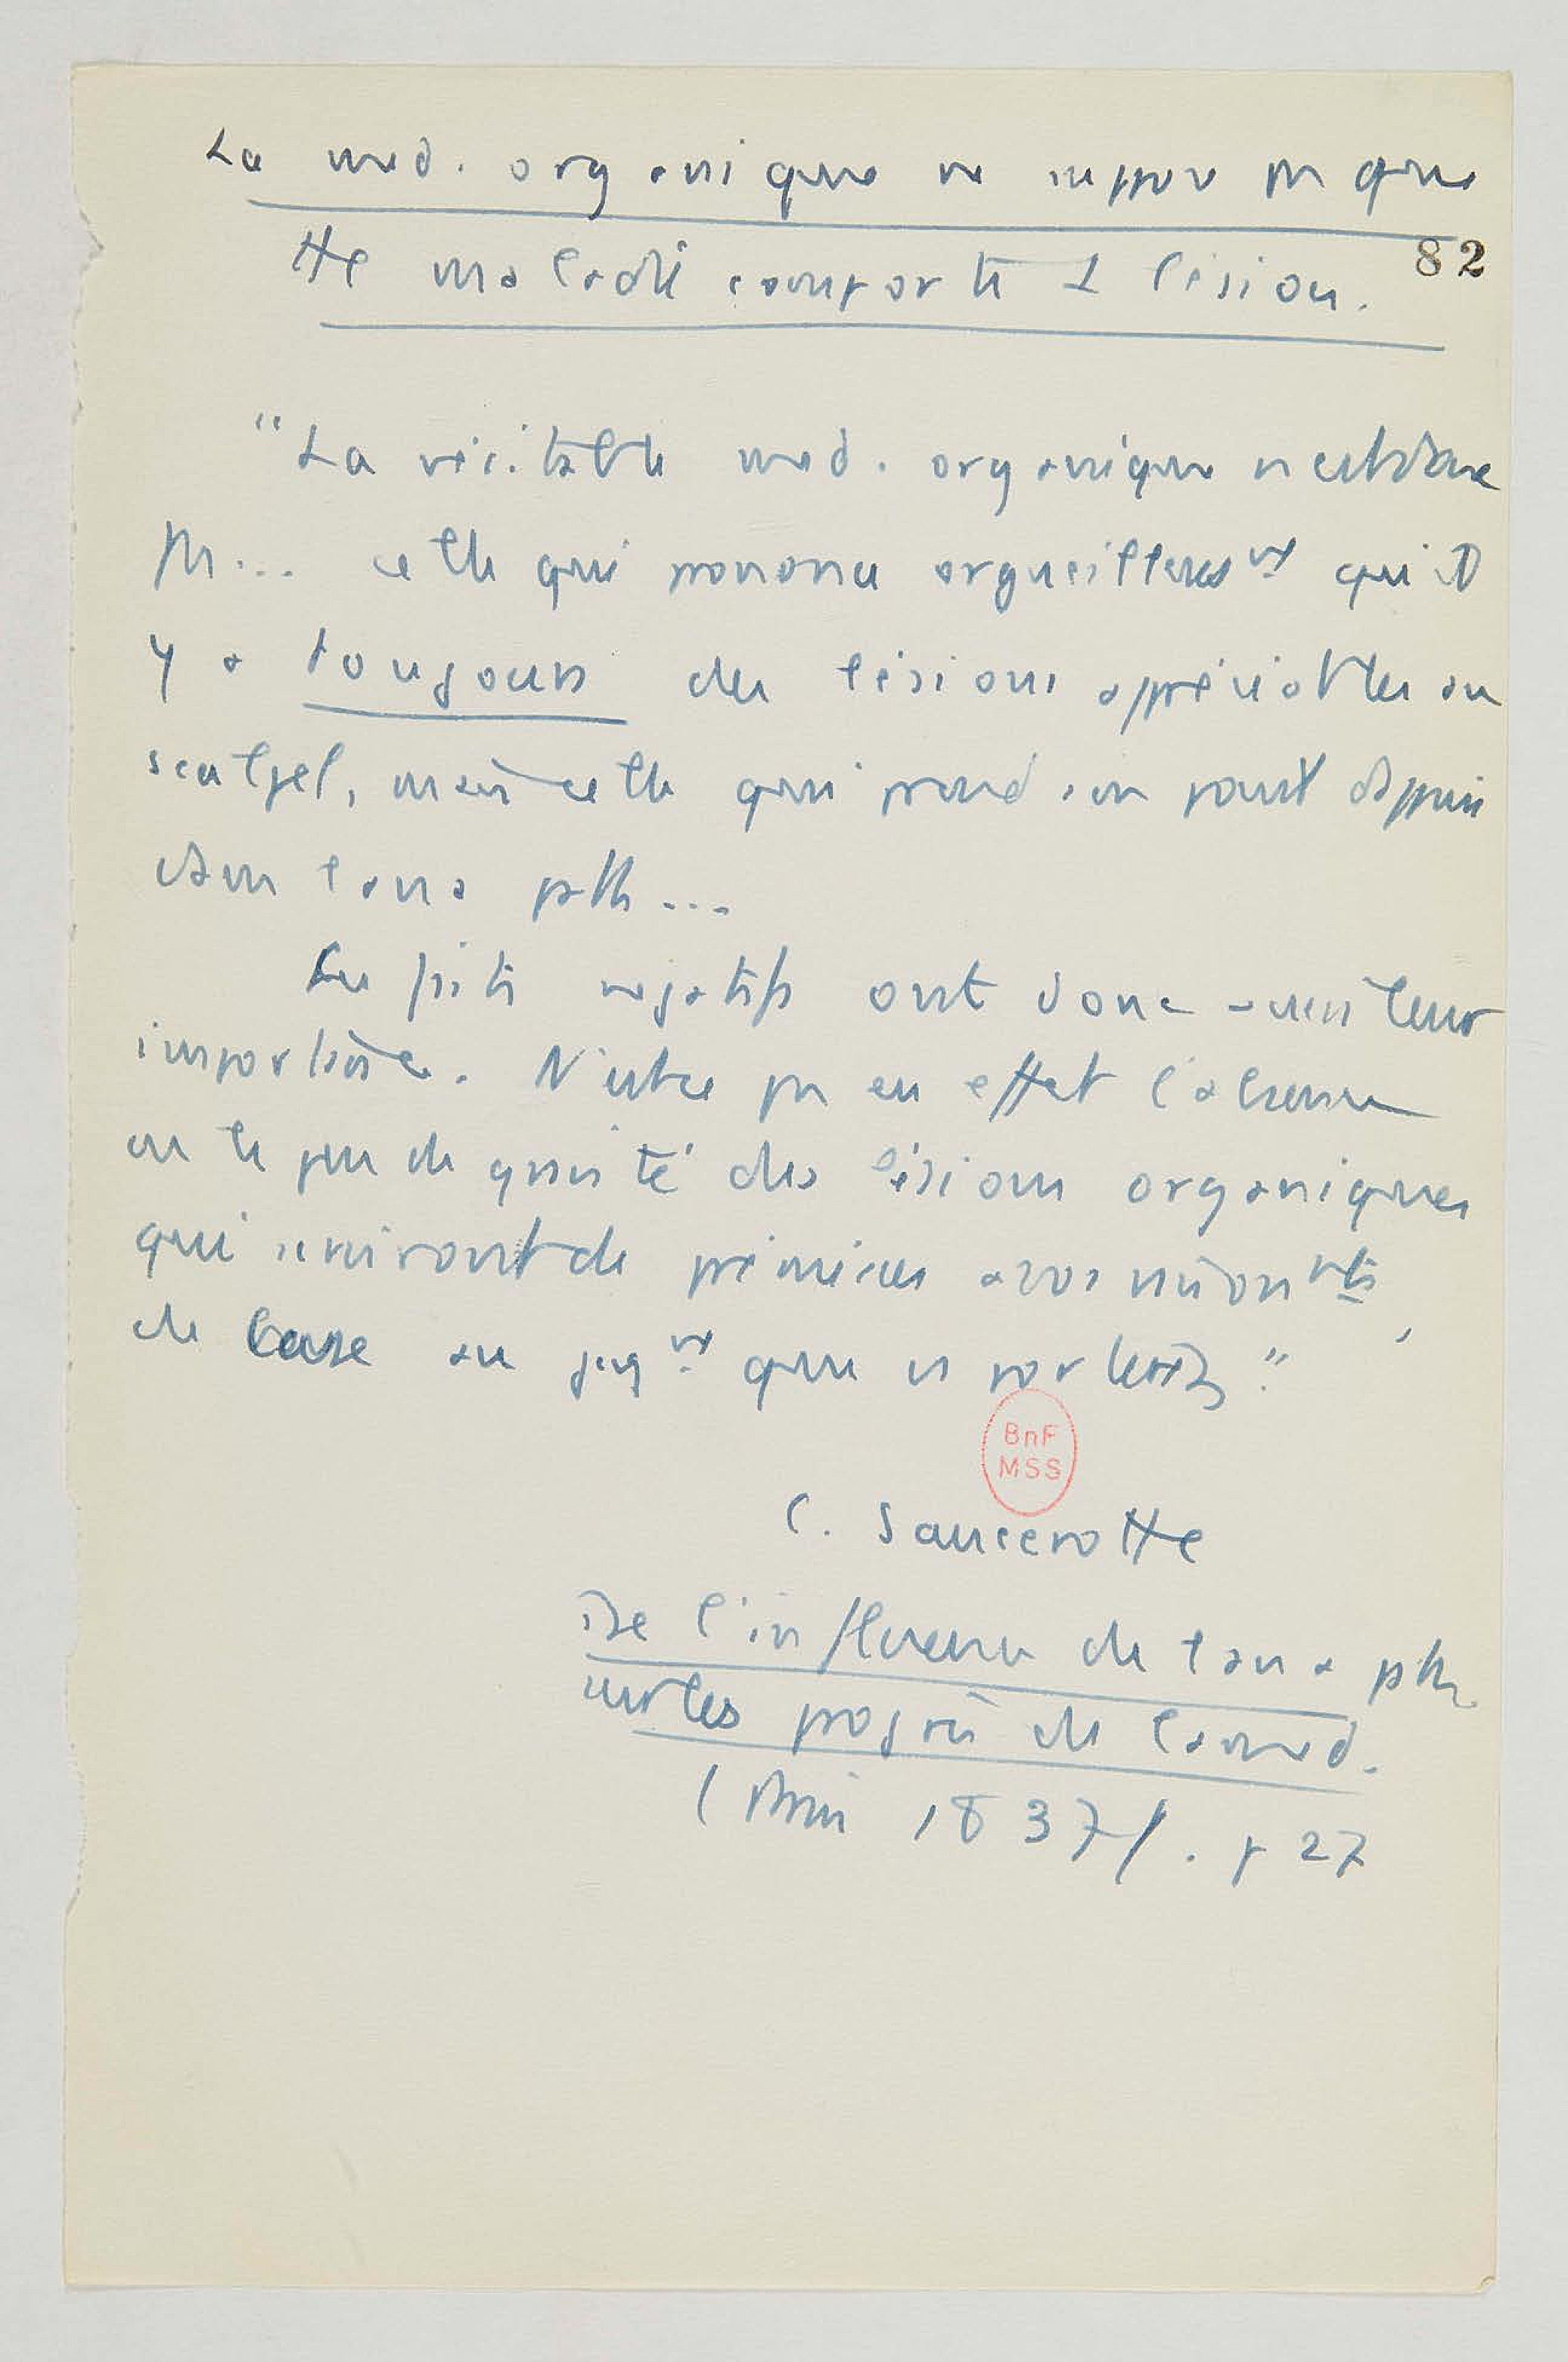 La med. organique ne suppose pas que
82
tte maladie comporte 1 lésion.
"La véritable med. organique n'est donc
pas... celle qui prononce orgueilleusᵗ qu'il
y a toujours des lésions appréciables au
scalpel, mais celle qui prend son point d'appui
dans l'ana path...
Les faits négatifs ont donc aussi leur
importance. N'est-ce pas en effet l'absence
ou le peu de gravité des lésions organiques
qui serviront de prémices à vos raisonᵗˢ,
de base au jugᵗ que vs porterez."
BnF
MSS
C. Saucerotte
De l'influence de l'ana path
sur les progrès de la med.
(Paris 1837). p 27